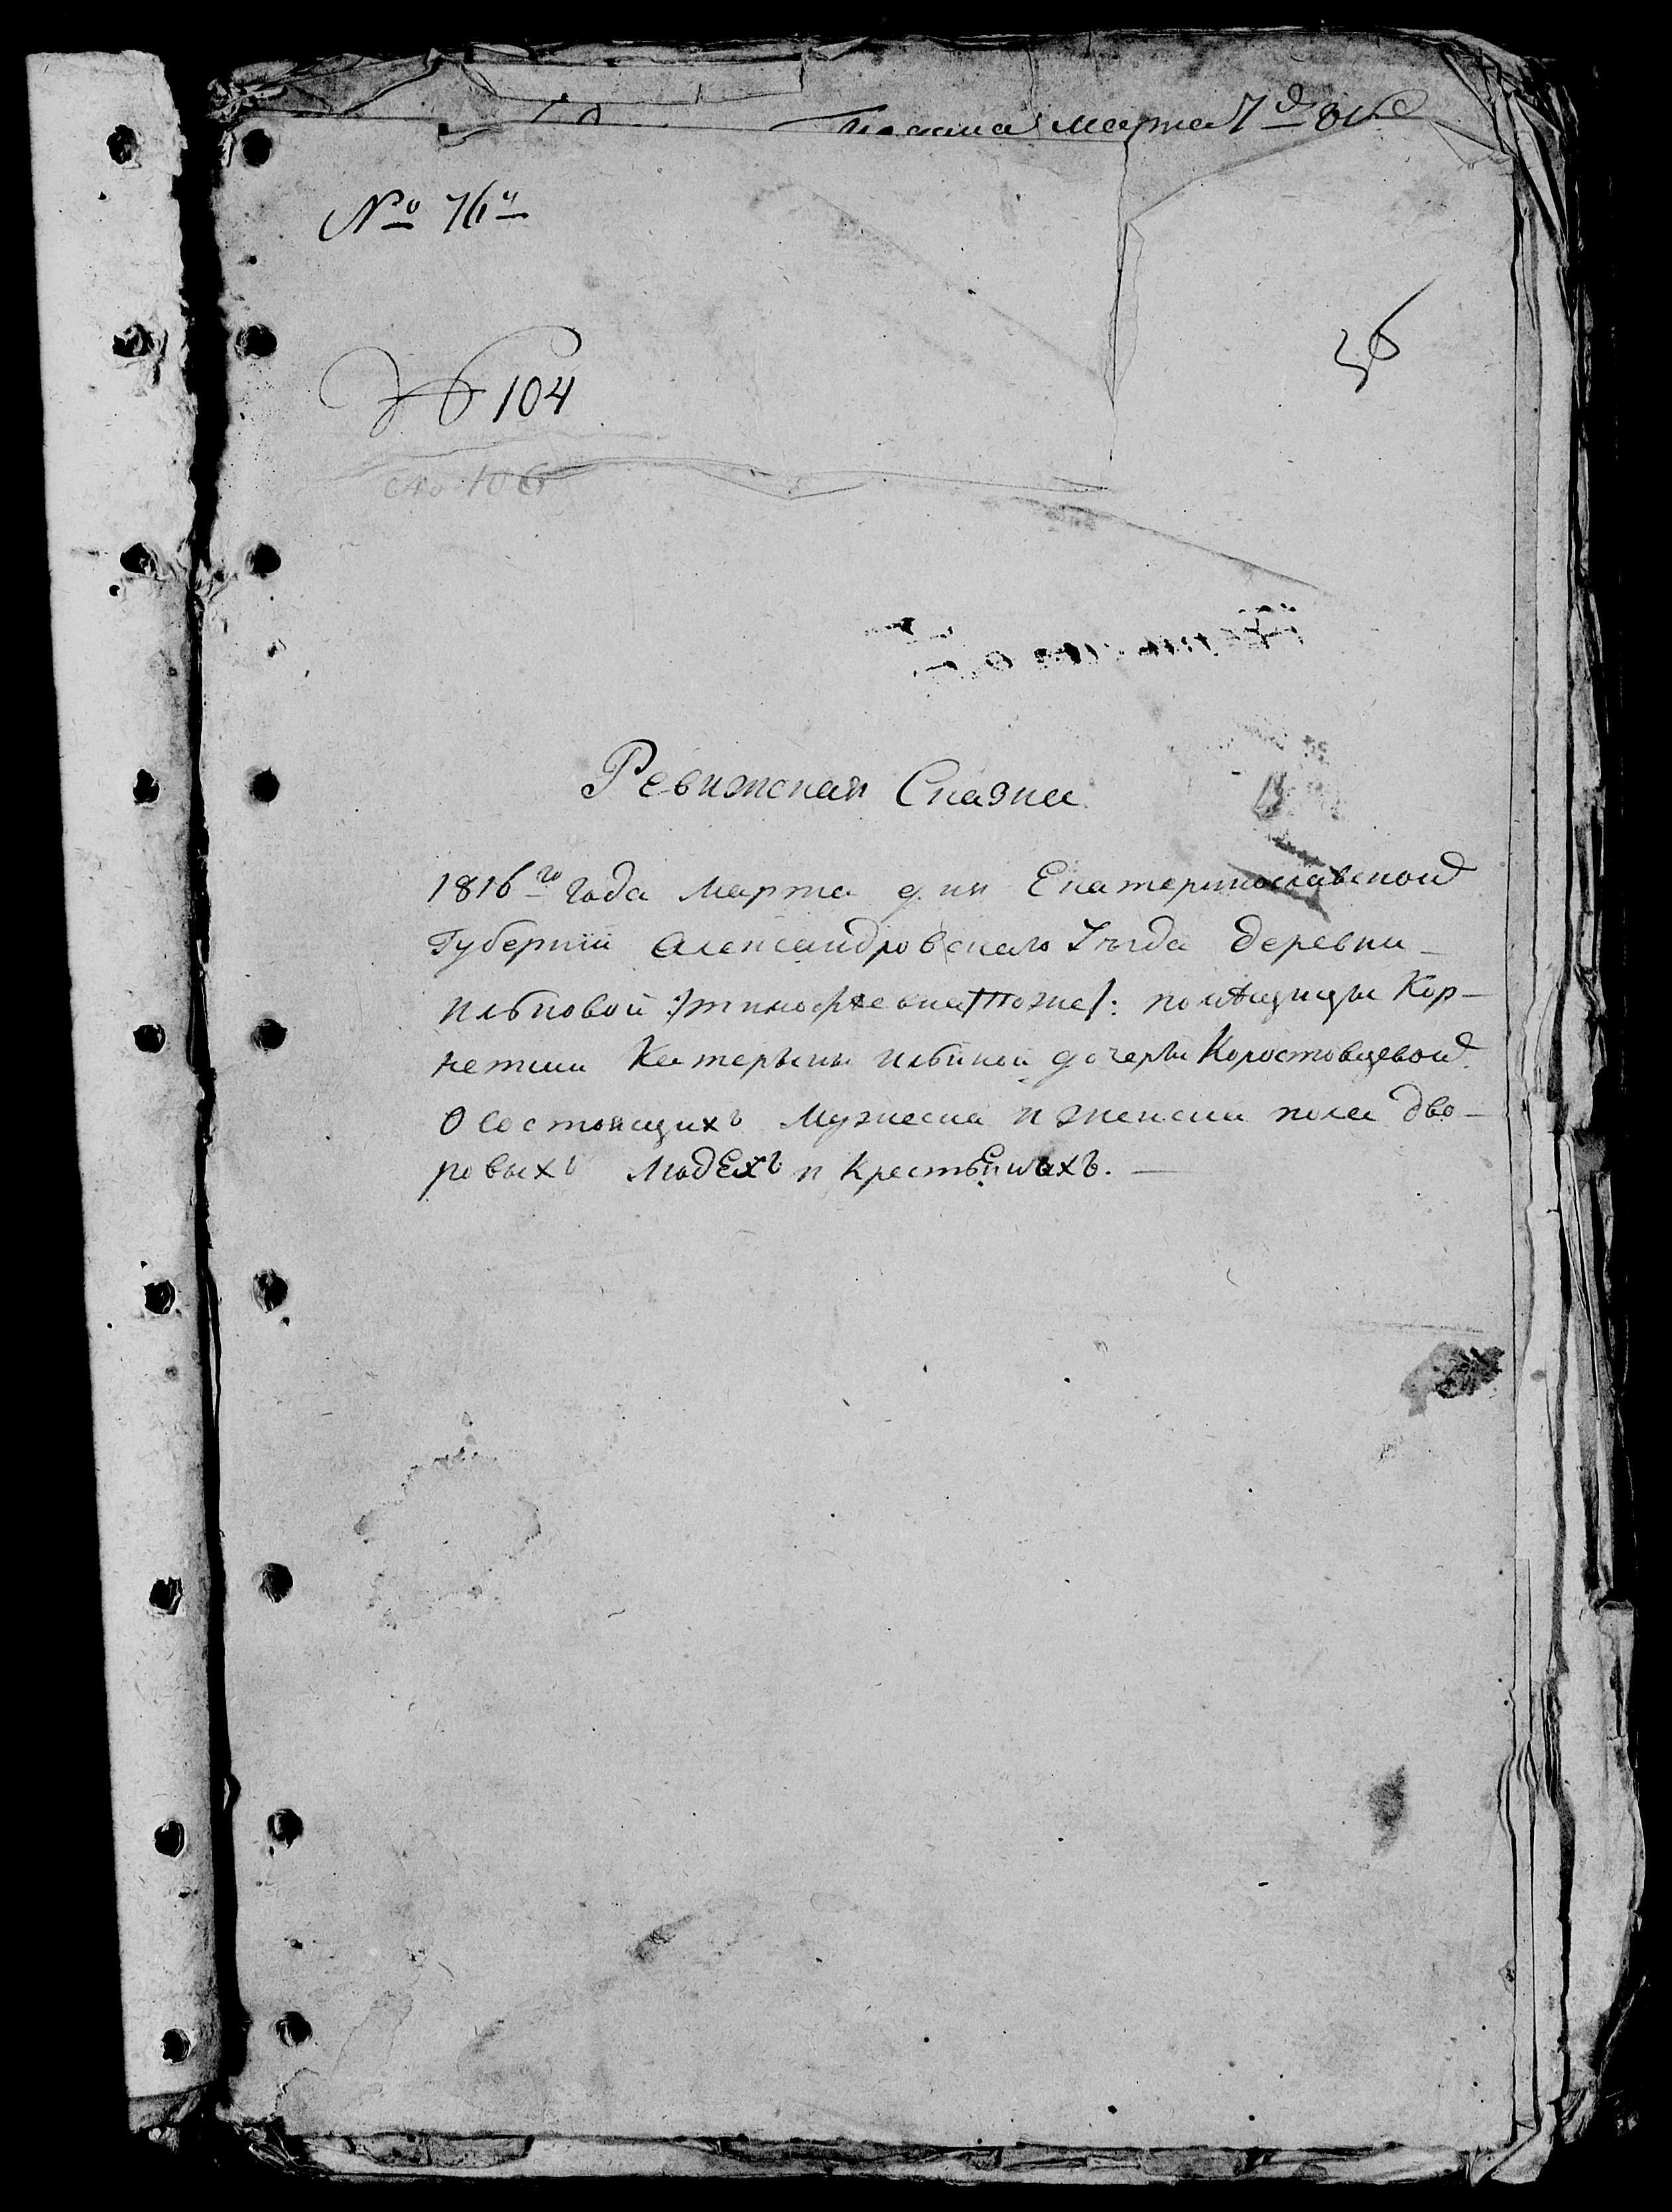 Подана марта 7д 816
№ 76й
№ 104
36
№ 106
Ревижская Сказка
1816го года марта дня Екатеринославской
Губернии Александровскаго Уѣзда деревни
Ильковой :/тимофеевка тоже/: помѣщицы Кор-
нетши Катерыны ильиной дочеры Коростовцевой
О состоящихъ мужеска и женска пола дво-
ровыхъ людехъ и крестьянахъ.